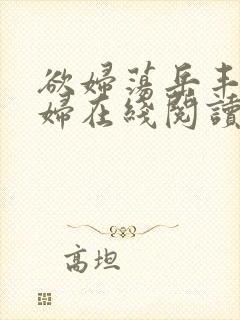 欲婦蕩岳丰
婦在綫閱讀
高坦